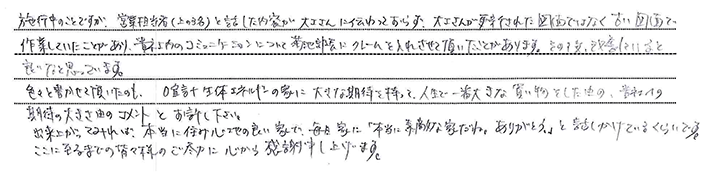 施行中のことですが、営業担当者(上の3名)と話した内容が大工さんに伝わっておらず、大工さんが更新された図面ではなく古い図面で
作業していたことがあり、貴社内のコミュニケーションについて菊池部長にクレームを入れさせて頂いたことがあります。その後、改善していると
良いなと思っています。
色々と書かせて頂いたのも、0宣言生体エネルギーの家に大きな期待を持って、人生で一番大きな買い物をした為の、貴社への
期待の大きさ由のコメントとお許し下さい。
出来上がってみれば、本当に住み心地の良い家で、毎日家に「本当に素敵な家だね。ありがとう。」と話しかけているくらいです。
ここに至るまでの皆々様のご尽力に心から感謝申し上げます。